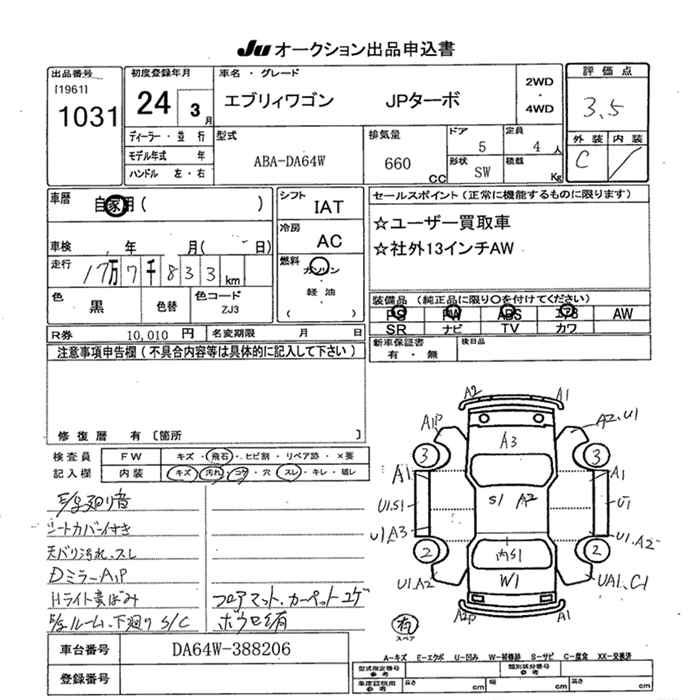 Ju オークション出品申込書
出品番号
[1961]
1031
初度登録年月
24 年 3 月
車名・グレード
エブリィワゴン JPターボ
2WD
・
4WD
評価点
3.5
外装 内装
C
ディーラー・並行
モデル年式 年
ハンドル 左・右
型式
ABA-DA64W
排気量
660 CC
ドア
5
定員
4 人
形状
SW
積載
Kg
車歴
自家用( )
車検 年 月( 日)
走行
17万7千833km
色
黒
色替
色コード
ZJ3
シフト
IAT
冷房
AC
燃料
ガソリン
・
軽油
( )
セールスポイント(正常に機能するものに限ります)
☆ユーザー買取車
☆社外13インチAW
装備品(純正品に限り○を付けてください)
PS PW ABS エアB AW
SR ナビ TV カワ
新車保証書
有・無
後日品
R券 10,010 円
名変期限 月 日
注意事項申告欄(不具合内容等は具体的に記入して下さい)
修復歴 有 〔箇所 〕
検査員
記入欄
FW キズ・飛石・ヒビ割・リペア跡・×要
内装 キズ・汚れ・コゲ・穴・スレ・キレ・破レ
シートカバー付き
天バリ汚れ、スレ
DミラーA1P
Hライト黄ばみ
ルーム、下廻りS/C
フロアマット、カーペットコゲ
車台番号 DA64W-388206
登録番号
A2 A1
A1P A2,U1
A3
3 3
A1 A1
U1.S1 S1 A2 U1
U1A3 U1.A2
2 2
内S1
U1.A2 W1 UA1.C1
A2P A1
有
スペア
A-キズ E-エクボ U-凹み W-補修跡 S-サビ C-腐食 XX-交換済
型式指定番号
参考
類別区分番号
参考
車庫証明用
参考
長さ cm 幅 cm 高さ cm